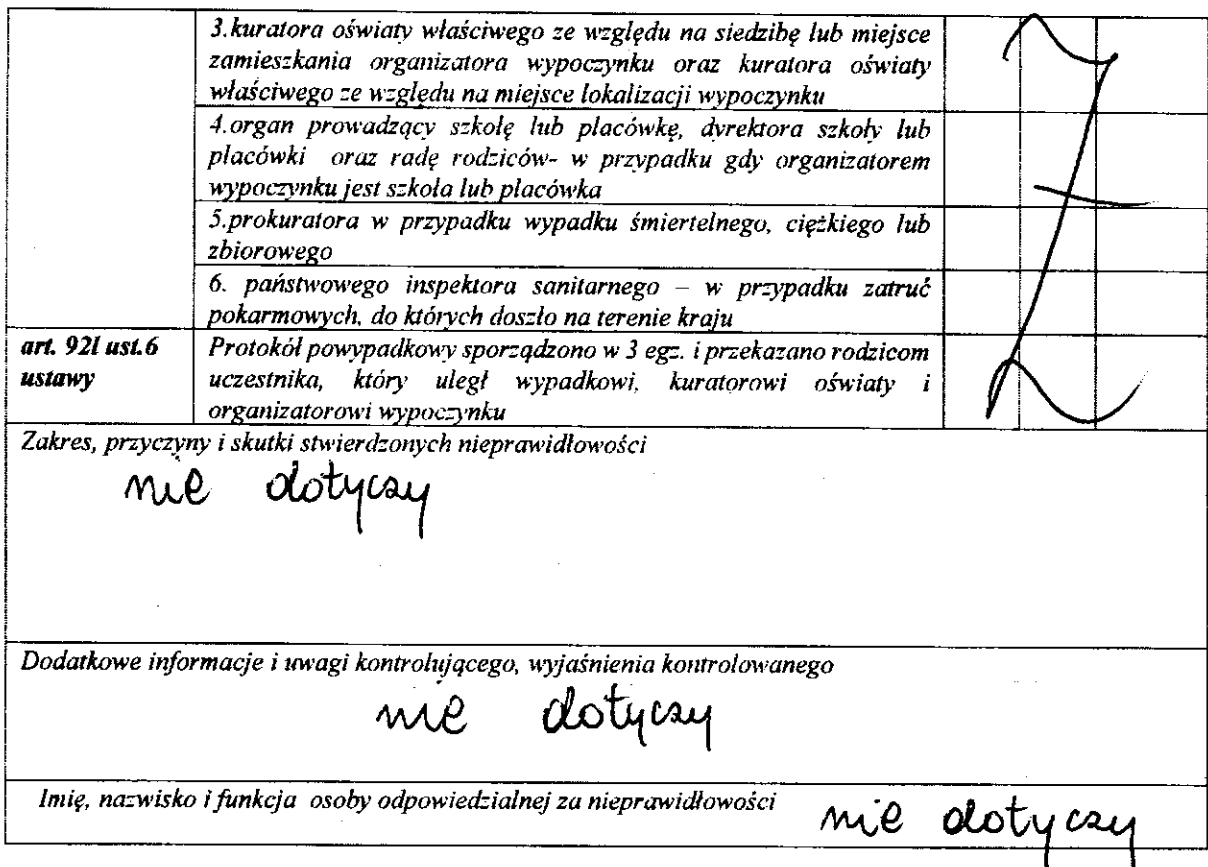 3.kuratora oświaty właściwego ze względu na siedzibę lub miejsce
zamieszkania organizatora wypoczynku oraz kuratora oświaty
właściwego ze względu na miejsce lokalizacji wypoczynku
4.organ prowadzący szkołę lub placówkę, dyrektora szkoły lub
placówki oraz radę rodziców- w przypadku gdy organizatorem
wypoczynku jest szkoła lub placówka
5.prokuratora w przypadku wypadku śmiertelnego, ciężkiego lub
zbiorowego
6. państwowego inspektora sanitarnego – w przypadku zatruć
pokarmowych, do których doszło na terenie kraju
art. 92l ust.6
ustawy
Protokół powypadkowy sporządzono w 3 egz. i przekazano rodzicom
uczestnika, który uległ wypadkowi, kuratorowi oświaty i
organizatorowi wypoczynku
Zakres, przyczyny i skutki stwierdzonych nieprawidłowości
nie dotyczy
Dodatkowe informacje i uwagi kontrolującego, wyjaśnienia kontrolowanego
nie dotyczy
Imię, nazwisko i funkcja osoby odpowiedzialnej za nieprawidłowości nie dotyczy